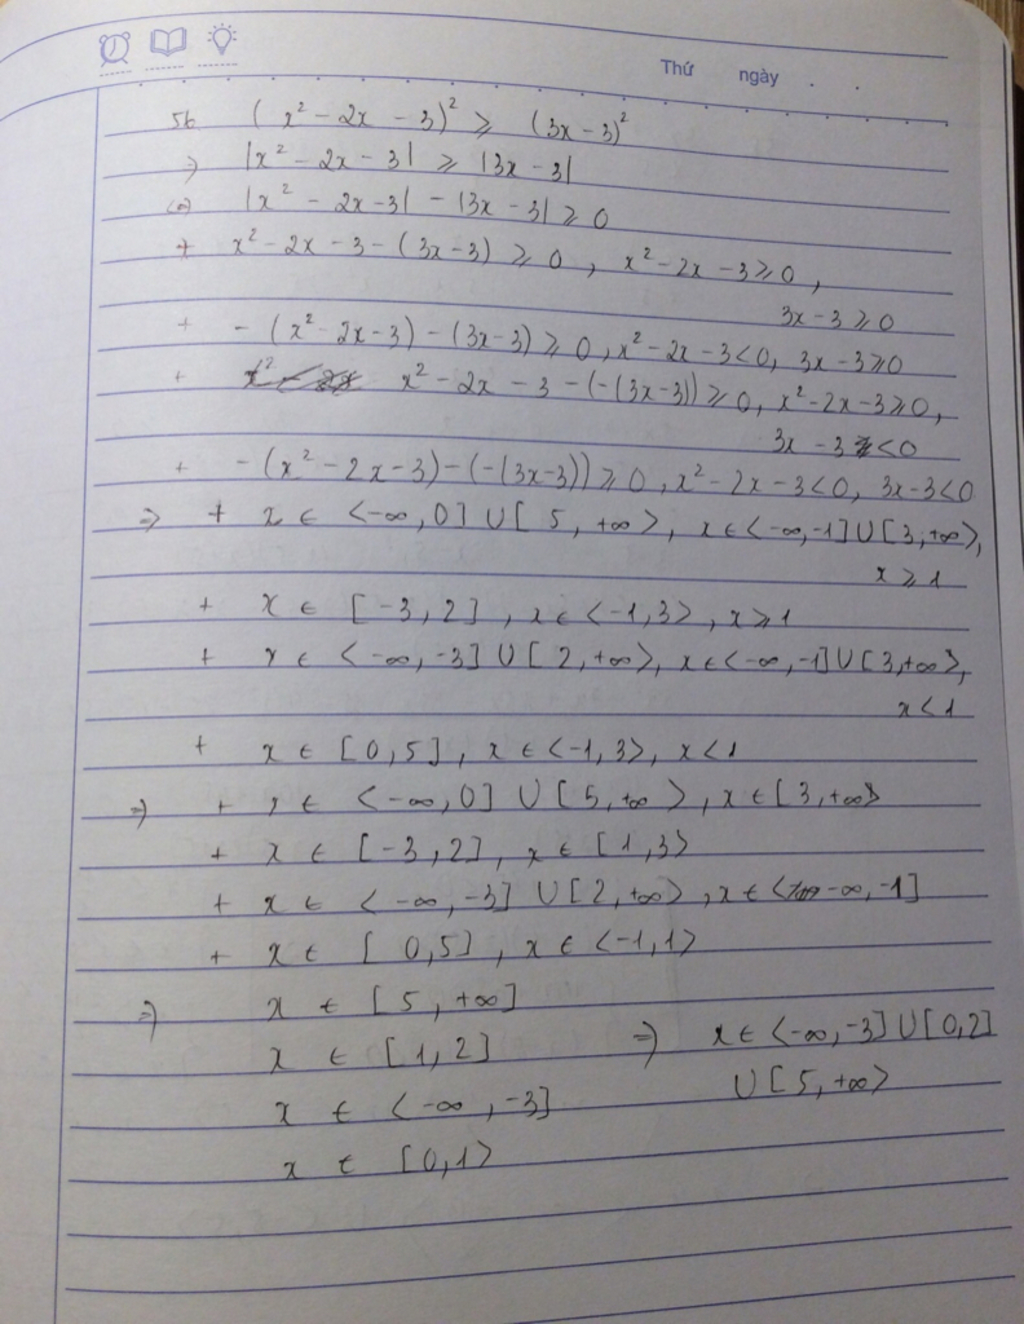 Thứ ngày . .
56 (x² - 2x - 3)² ⩾ (3x - 3)²
⇒ |x² - 2x - 3| ⩾ |3x - 3|
⇔ |x² - 2x - 3| - |3x - 3| ⩾ 0
+ x² - 2x - 3 - (3x - 3) ⩾ 0, x² - 2x - 3 ⩾ 0,
3x - 3 ⩾ 0
+ - (x² - 2x - 3) - (3x - 3) ⩾ 0, x² - 2x - 3 < 0, 3x - 3 ⩾ 0
+ x² - 2x - 3 - (-(3x - 3)) ⩾ 0, x² - 2x - 3 ⩾ 0,
3x - 3 < 0
+ - (x² - 2x - 3) - (-(3x - 3)) ⩾ 0, x² - 2x - 3 < 0, 3x - 3 < 0
⇒ + x ∈ <-∞, 0] ∪ [5, +∞>, x ∈ <-∞, -1] ∪ [3, +∞>,
x ⩾ 1
+ x ∈ [-3, 2], x ∈ <-1, 3>, x ⩾ 1
+ x ∈ <-∞, -3] ∪ [2, +∞>, x ∈ <-∞, -1] ∪ [3, +∞>,
x < 1
+ x ∈ [0, 5], x ∈ <-1, 3>, x < 1
⇒ + x ∈ <-∞, 0] ∪ [5, +∞>, x ∈ [3, +∞>
+ x ∈ [-3, 2], x ∈ [1, 3>
+ x ∈ <-∞, -3] ∪ [2, +∞>, x ∈ <-∞, -1]
+ x ∈ [0, 5], x ∈ <-1, 1>
⇒ x ∈ [5, +∞]
x ∈ [1, 2] ⇒ x ∈ <-∞, -3] ∪ [0, 2]
∪ [5, +∞>
x ∈ <-∞, -3]
x ∈ [0, 1>